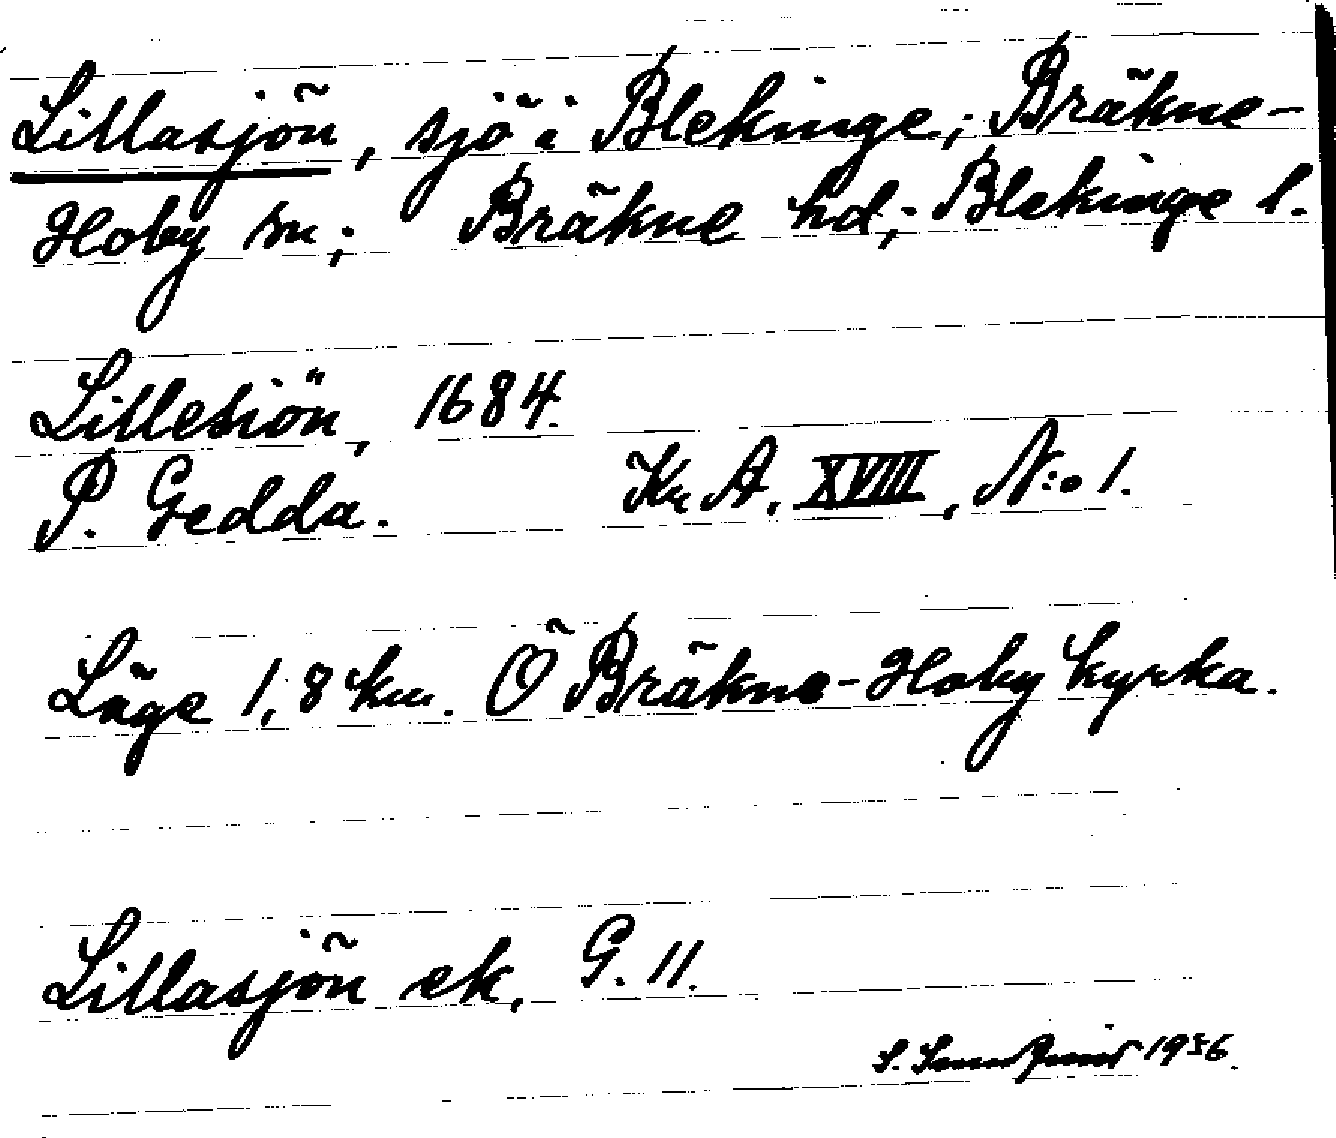 Lillasjön, sjö i Blekinge; Bräkne-
Hoby sn; Bräkne hd; Blekinge l.
Lillesiön, 1684.
P. Gedda. Kr. A. XVIII, N:o 1.
Läge 1,8 km. Ö Bräkne-Hoby kyrka.
Lillasjön ek. G. 11.
S. 1956.